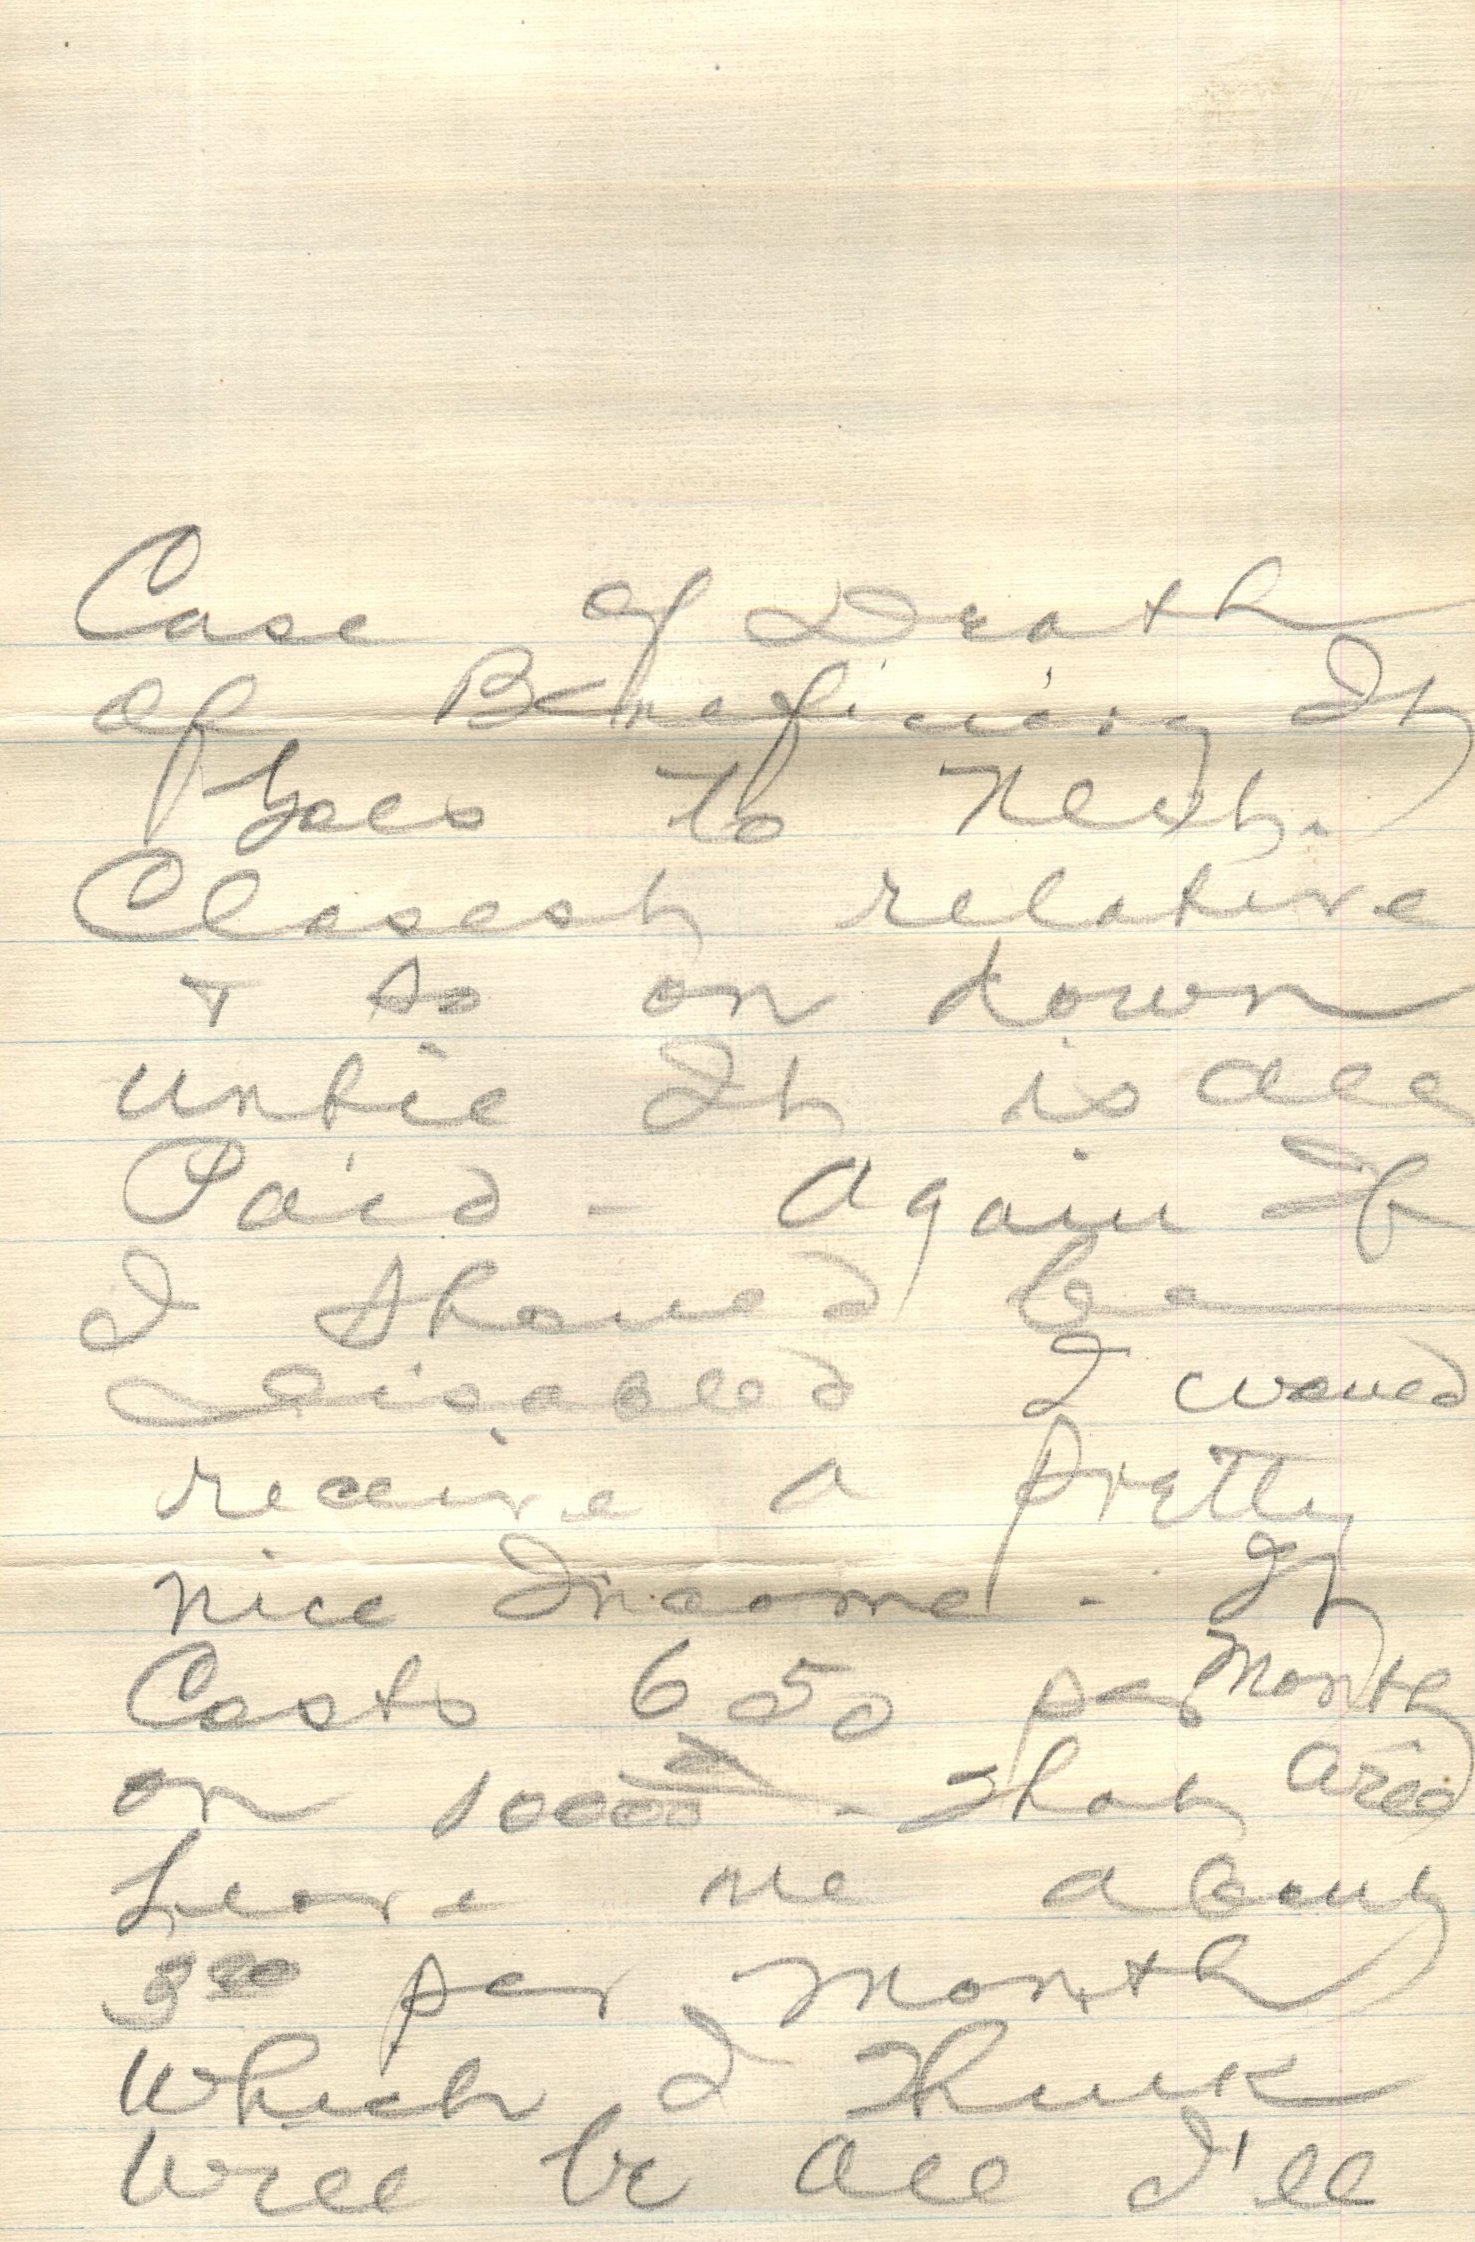 Case of Death
of Beneficiary It
goes to next
Closest relative
+ so on down
until It is all
Paid - Again If
I should be
Disabled I would
receive a pretty
nice Income - It
Costs 6 50 per Month
on 10000 - That will
Leave me about
per Month
which I think
will be all I'll